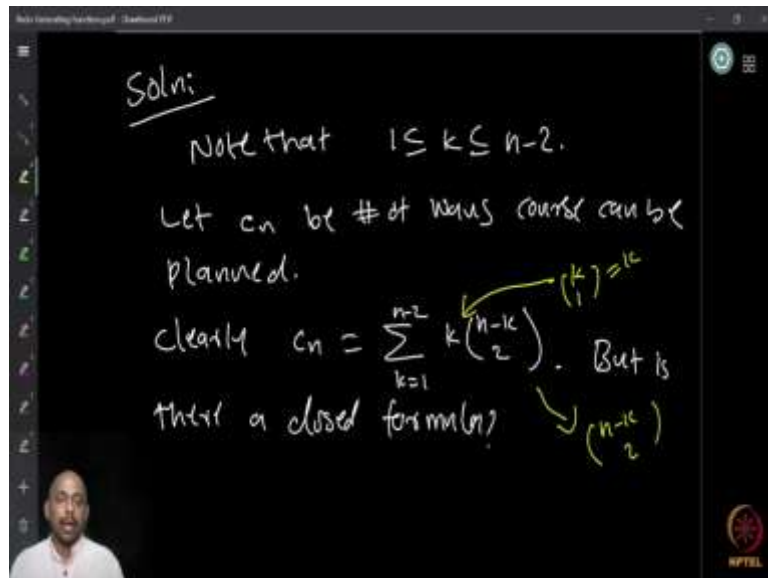 Soln:
Note that 1 ≤ k ≤ n-2.
Let cn be # of ways course can be
planned.
(k 1) = k
clearly cn = ∑ n-2 k=1 k (n-k 2). But is
there a closed formula?
(n-k 2)
NPTEL